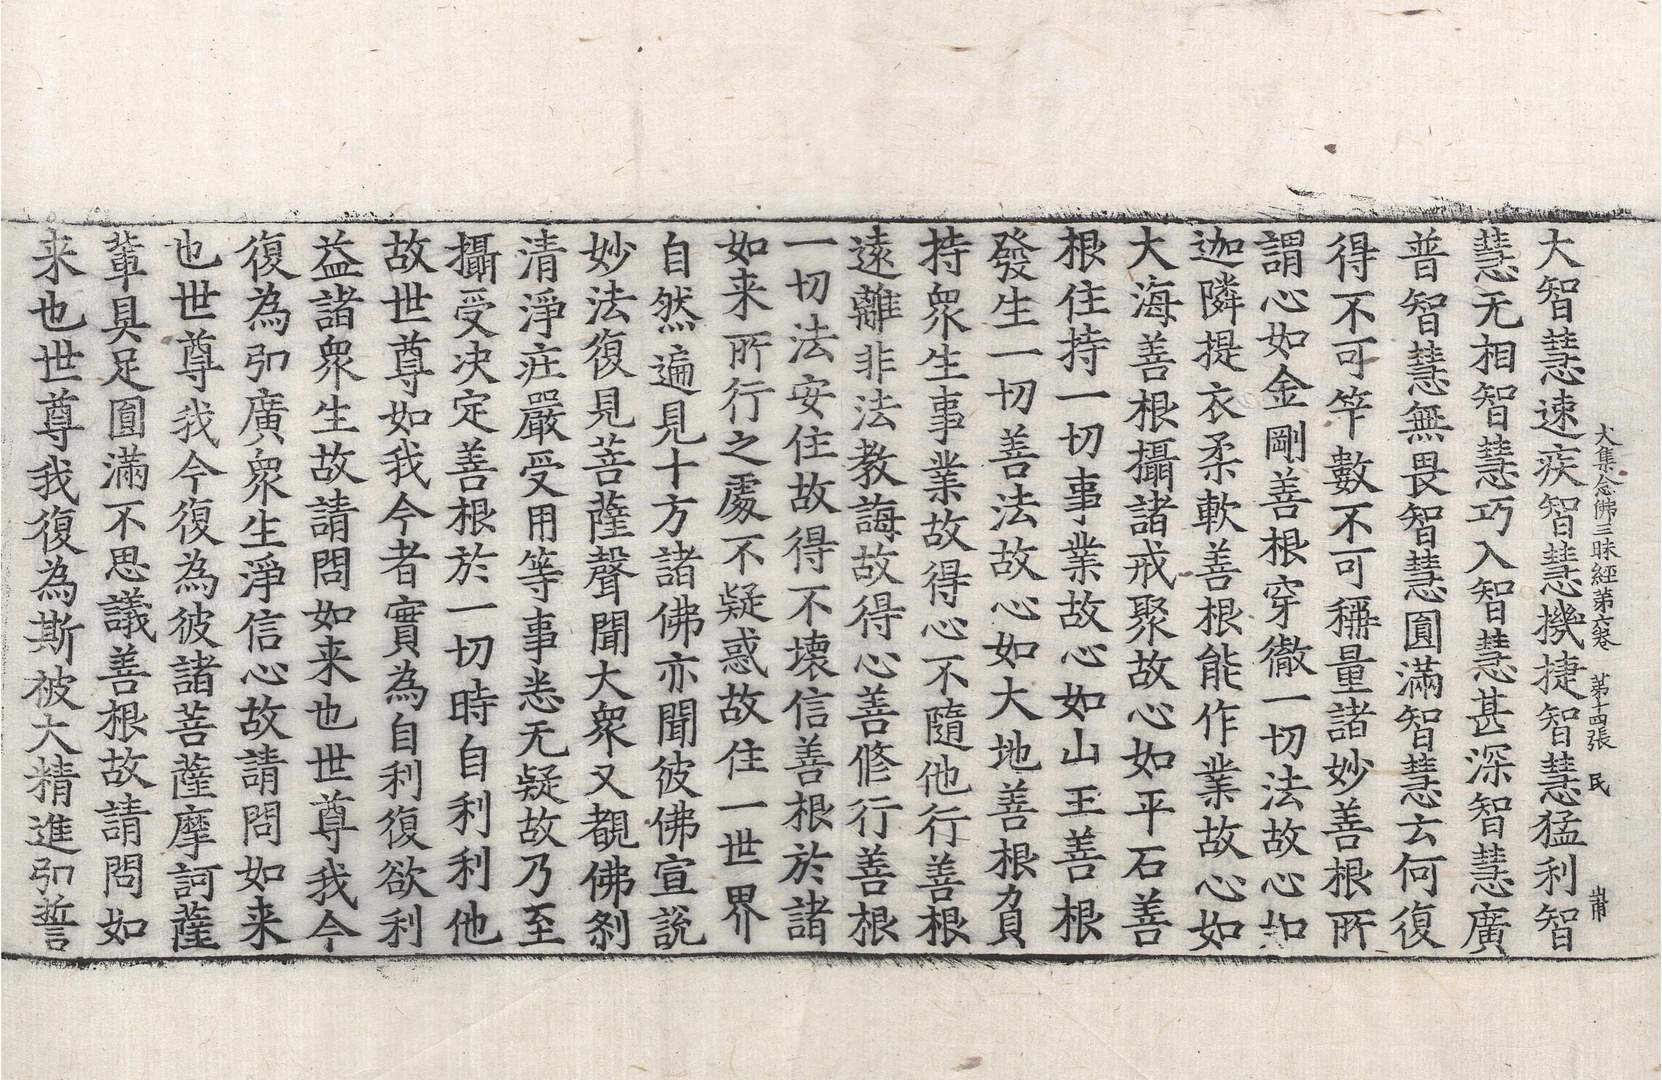 大集念佛三昧經第六卷 第十四張 民
大智慧速疾智慧機捷智慧猛利智
慧无相智慧巧入智慧甚深智慧廣
普智慧無畏智慧圓滿智慧云何復
得不可竿數不可稱量諸妙善根所
謂心如金剛善根穿徹一切法故心如
迦隣提衣柔軟善根能作業故心如
大海善根攝諸戒聚故心如平石善
根住持一切事業故心如山王善根
發生一切善法故心如大地善根負
持衆生事業故得心不隨他行善根
遠離非法教誨故得心善修行善根
一切法安住故得不壞信善根於諸
如来所行之處不疑惑故住一世界
自然遍見十方諸佛亦聞彼佛宣說
妙法復見菩薩聲聞大衆又覩佛剎
清淨庄嚴受用等事悉无疑故乃至
攝受决定善根於一切時自利利他
故世尊如我今者實為自利復欲利
益諸衆生故請問如来也世尊我今
復為弘廣衆生淨信心故請問如来
也世尊我今復為彼諸菩薩摩訶薩
輩具足圓滿不思議善根故請問如
来也世尊我復為斯被大精進弘誓